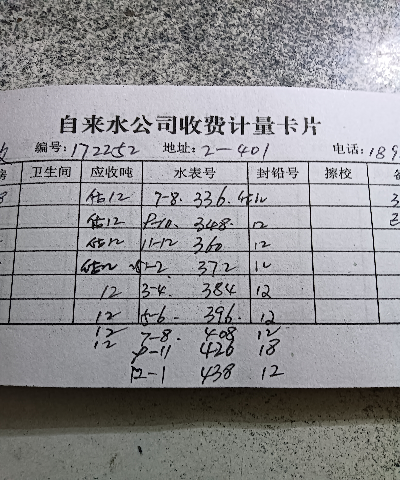 自来水公司收费计量卡片
编号:172252 地址:2-401 电话:189
卫生间 应收吨 水表号 封铅号 擦校
估12 7-8. 336. 估12
估12 9-10. 348. 12
估12 11-12 360 12
估12 -2 372 12
12 3-4. 384 12
12 5-6. 396. 12
12 7-8. 408 12
12 -11 426 18
12-1 438 12